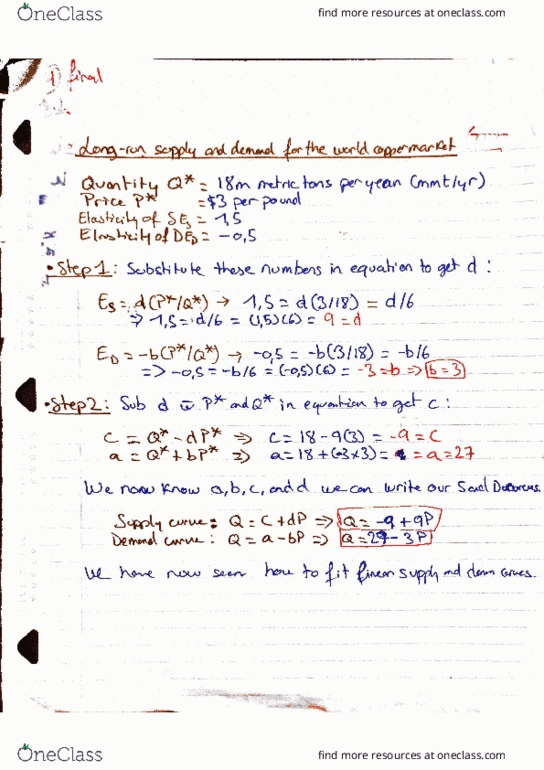 OneClass
find more resources at oneclass.com
1) final
Long-run supply and demand for the world copper market
Quantity Q* = 18m metric tons per year (mmt/yr)
Price P* = $3 per pound
Elasticity of S Es = 1,5
Elasticity of D ED = -0,5
• Step 1: Substitute these numbers in equation to get d:
Es = d(P*/Q*) → 1,5 = d(3/18) = d/6
⇒ 1,5 = d/6 = (1,5)(6) = 9 = d
ED = -b(P*/Q*) → -0,5 = -b(3/18) = -b/6
=> -0,5 = -b/6 = (-0,5)(6) = -3 = -b ⇒ b = 3
• Step 2: Sub d P* and Q* in equation to get c:
c = Q* - dP* ⇒ c = 18 - 9(3) = -9 = c
a = Q* + bP* ⇒ a = 18 + (3x3) = = a = 27
We now know a, b, c, and d we can write our S and D
Supply curve: Q = c + dP ⇒ Q = -9 + 9P
Demand curve: Q = a - bP ⇒ Q = 27 - 3P
We have now seen how to fit linear supply and dem curves.
OneClass
find more resources at oneclass.com